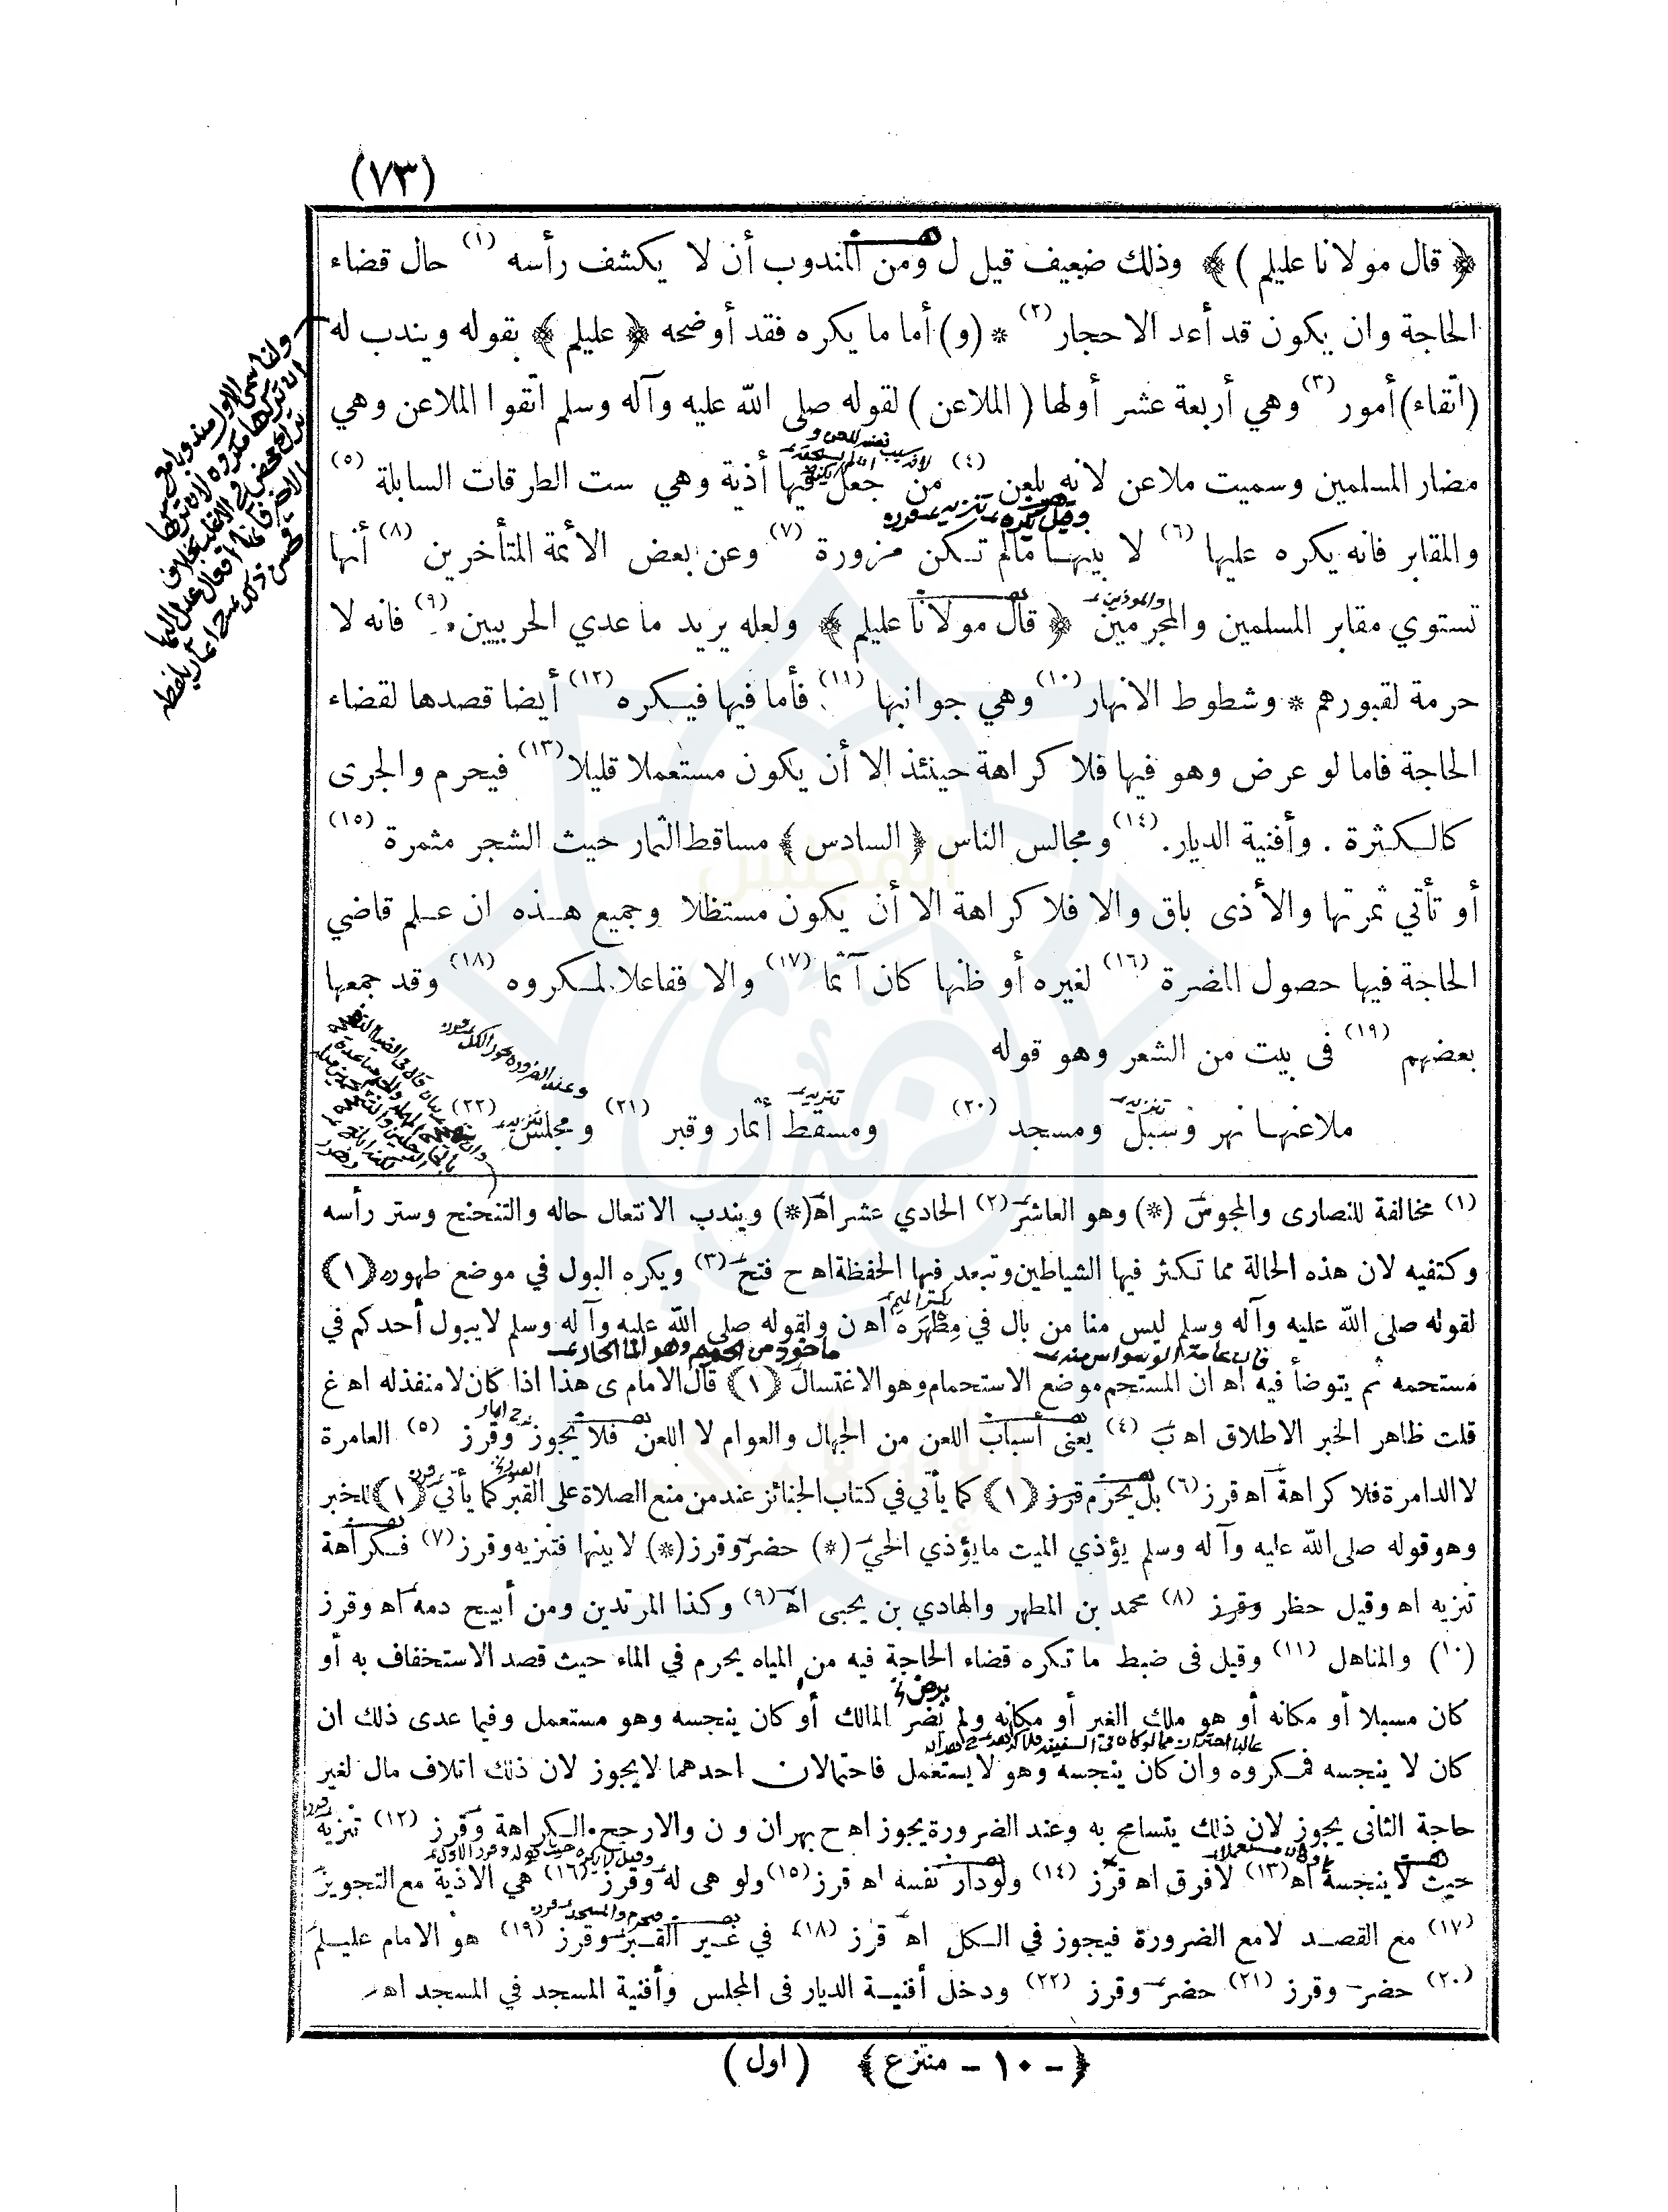 (٧٣)
﴿ قال مولانا عليلم ﴾ وذلك ضعيف قيل ل ومن المندوب أن لا يكشف رأسه (١) حال قضاء
الحاجة وان يكون قد أعد الاحجار (٢) * (و) أما ما يكره فقد أوضحه ﴿ عليلم ﴾ بقوله ويندب له
(اتقاء) أمور (٣) وهي أربعة عشر أولها ( الملاعن ) لقوله صلى الله عليه وآله وسلم اتقوا الملاعن وهي
مضار المسلمين وسميت ملاعن لانه يلعن (٤) من جعل فيها أذية وهي ست الطرقات السابلة (٥)
والمقابر فانه يكره عليها (٦) لا بينها مالم تكن مزورة (٧) وعن بعض الأئمة المتأخرين (٨) أنها
تستوي مقابر المسلمين والمجرمين ﴿ قال مولانا عليلم ﴾ ولعله يريد ما عدى الحربيين (٩) فانه لا
حرمة لقبورهم * وشطوط الانهار (١٠) وهي جوانبها (١١) فأما فيها فيكره (١٢) أيضا قصدها لقضاء
الحاجة فاما لو عرض وهو فيها فلا كراهة حينئذ الا أن يكون مستعملا قليلا (١٣) فيحرم والجرى
كالكثرة . وأفنية الديار. (١٤) ومجالس الناس ﴿ السادس ﴾ مساقط الثمار حيث الشجر مثمرة (١٥)
أو تأتي ثمرتها والأذى باق والا فلا كراهة الا أن يكون مستظلا وجميع هذه ان علم قاضي
الحاجة فيها حصول المضرة (١٦) لغيره أو ظنها كان آثما (١٧) والا ففاعلا لمكروه (١٨) وقد جمعها
بعضهم (١٩) فى بيت من الشعر وهو قوله
ملاعنها نهر وسبل ومسجد (٢٠) ومسقط أثمار وقبر (٢١) ومجلس (٢٢)
(١) مخالفة للنصارى والمجوس (*) وهو العاشر (٢) الحادي عشر اه (*) ويندب الانتعال حاله والتنحنح وستر رأسه
وكتفيه لان هذه الحالة مما تكثر فيها الشياطين وتبعد فيها الحفظة اه ح فتح (٣) ويكره البول في موضع طهوره (١)
لقوله صلى الله عليه وآله وسلم ليس منا من بال في مطهره اه ن ولقوله صلى الله عليه وآله وسلم لا يبول أحدكم في
مستحمه ثم يتوضأ فيه اه ان المستحم موضع الاستحمام وهو الاغتسال (١) قال الامام ى هذا اذا كان لا منفذ له اه غ
قلت ظاهر الخبر الاطلاق اه ب (٤) يعنى أسباب اللعن من الجهال والعوام لا اللعن فلا يجوز وقرز (٥) العامرة
لا الدامرة فلا كراهة اه قرز (٦) بل يحرم قرز (١) كما يأتي في كتاب الجنائز عند من منع الصلاة على القبر كما يأتي (١) للخبر
وهو قوله صلى الله عليه وآله وسلم يؤذي الميت ما يؤذي الحي (*) حضر وقرز (*) لا بينها فتنزيه وقرز (٧) فكراهة
تنزيه اه وقيل حظر وقرز (٨) محمد بن المطهر والهادي بن يحيى اه (٩) وكذا المرتدين ومن أبيح دمه اه وقرز
(١٠) والمناهل (١١) وقيل فى ضبط ما تكره قضاء الحاجة فيه من المياه يحرم في الماء حيث قصد الاستخفاف به أو
كان مسبلا أو مكانه أو هو ملك الغير أو مكانه ولم يضر المالك أو كان ينجسه وهو مستعمل وفيما عدى ذلك ان
كان لا ينجسه فمكروه وان كان ينجسه وهو لا يستعمل فاحتمالان احدهما لا يجوز لان ذلك اتلاف مال لغير
حاجة الثانى يجوز لان ذلك يتسامح به وعند الضرورة يجوز اه ح بهران و ن والارجح الكراهة وقرز (١٢) تنزيه
حيث لا ينجسه اه (١٣) لا فرق اه قرز (١٤) ولو دار نفسه اه قرز (١٥) ولو هى له وقرز (١٦) هي الاذية مع التجويز
(١٧) مع القصد لا مع الضرورة فيجوز في الكل اه قرز (١٨) في غير القبر وقرز (١٩) هو الامام عليلم
(٢٠) حضر وقرز (٢١) حضر وقرز (٢٢) ودخل أفنية الديار فى المجلس وأفنية المسجد في المسجد اه
﴿ - ١٠ - منتزع ﴾ ( اول )